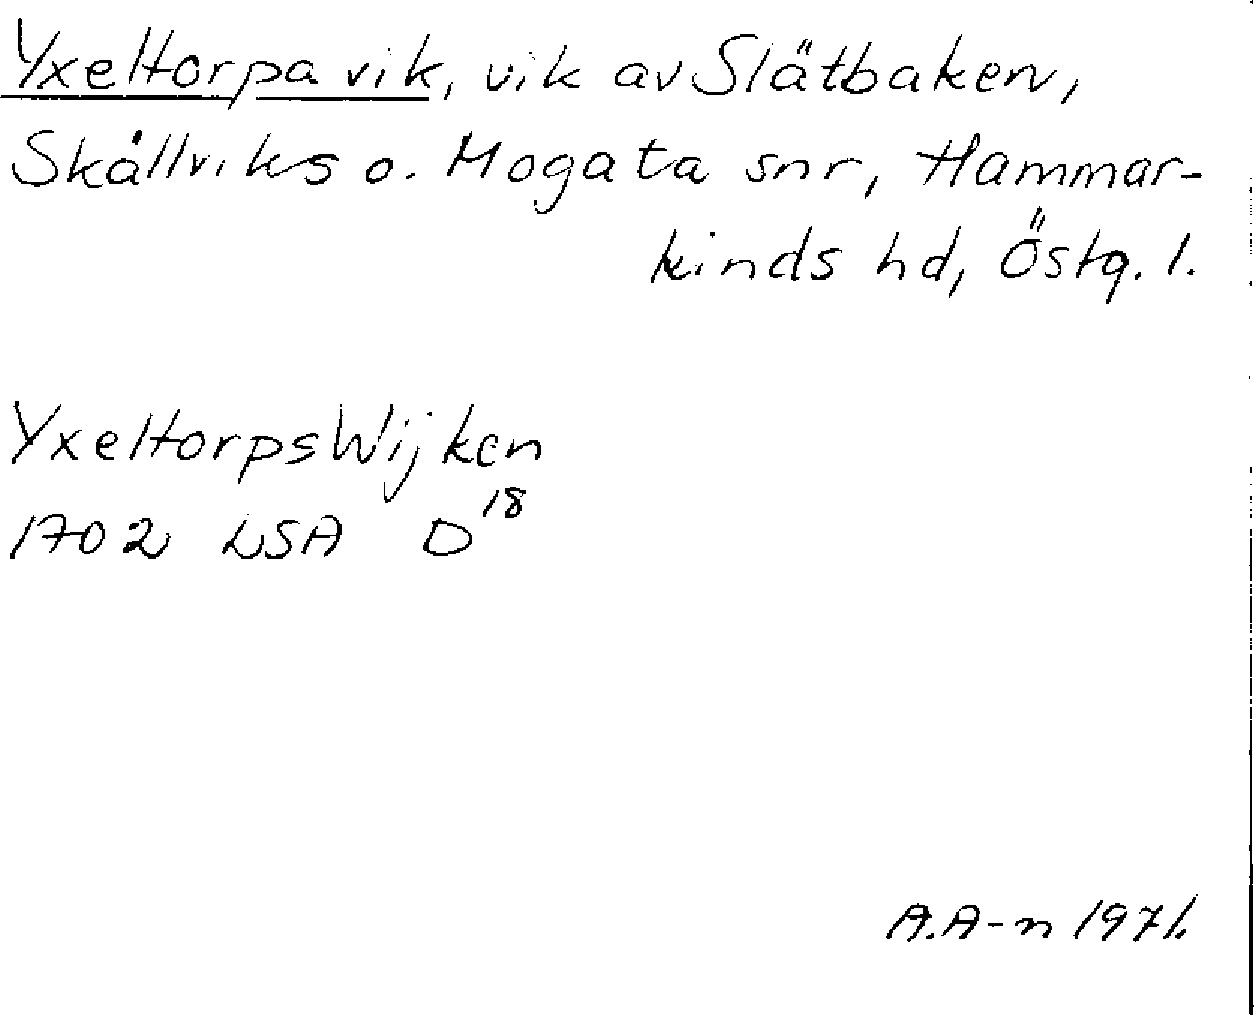 Yxeltorpa vik, vik av Slätbaken,
Skällviks o. Mogata snr, Hammar-
kinds hd, Östg. l.
YxeltorpsWijken
1702 LSA D18
A.A-n 1971.